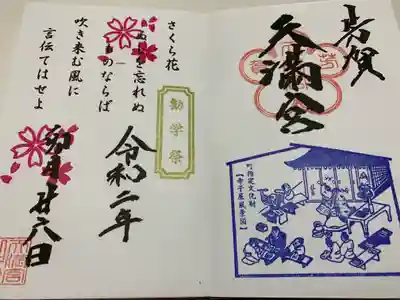 芳賀
天満宮
町指定文化財
【寺子屋風景図】
勧学祭
さくら花
ぬしを忘れぬ
ものならば
吹き来む風に
言伝てはせよ
令和二年
卯月廿八日